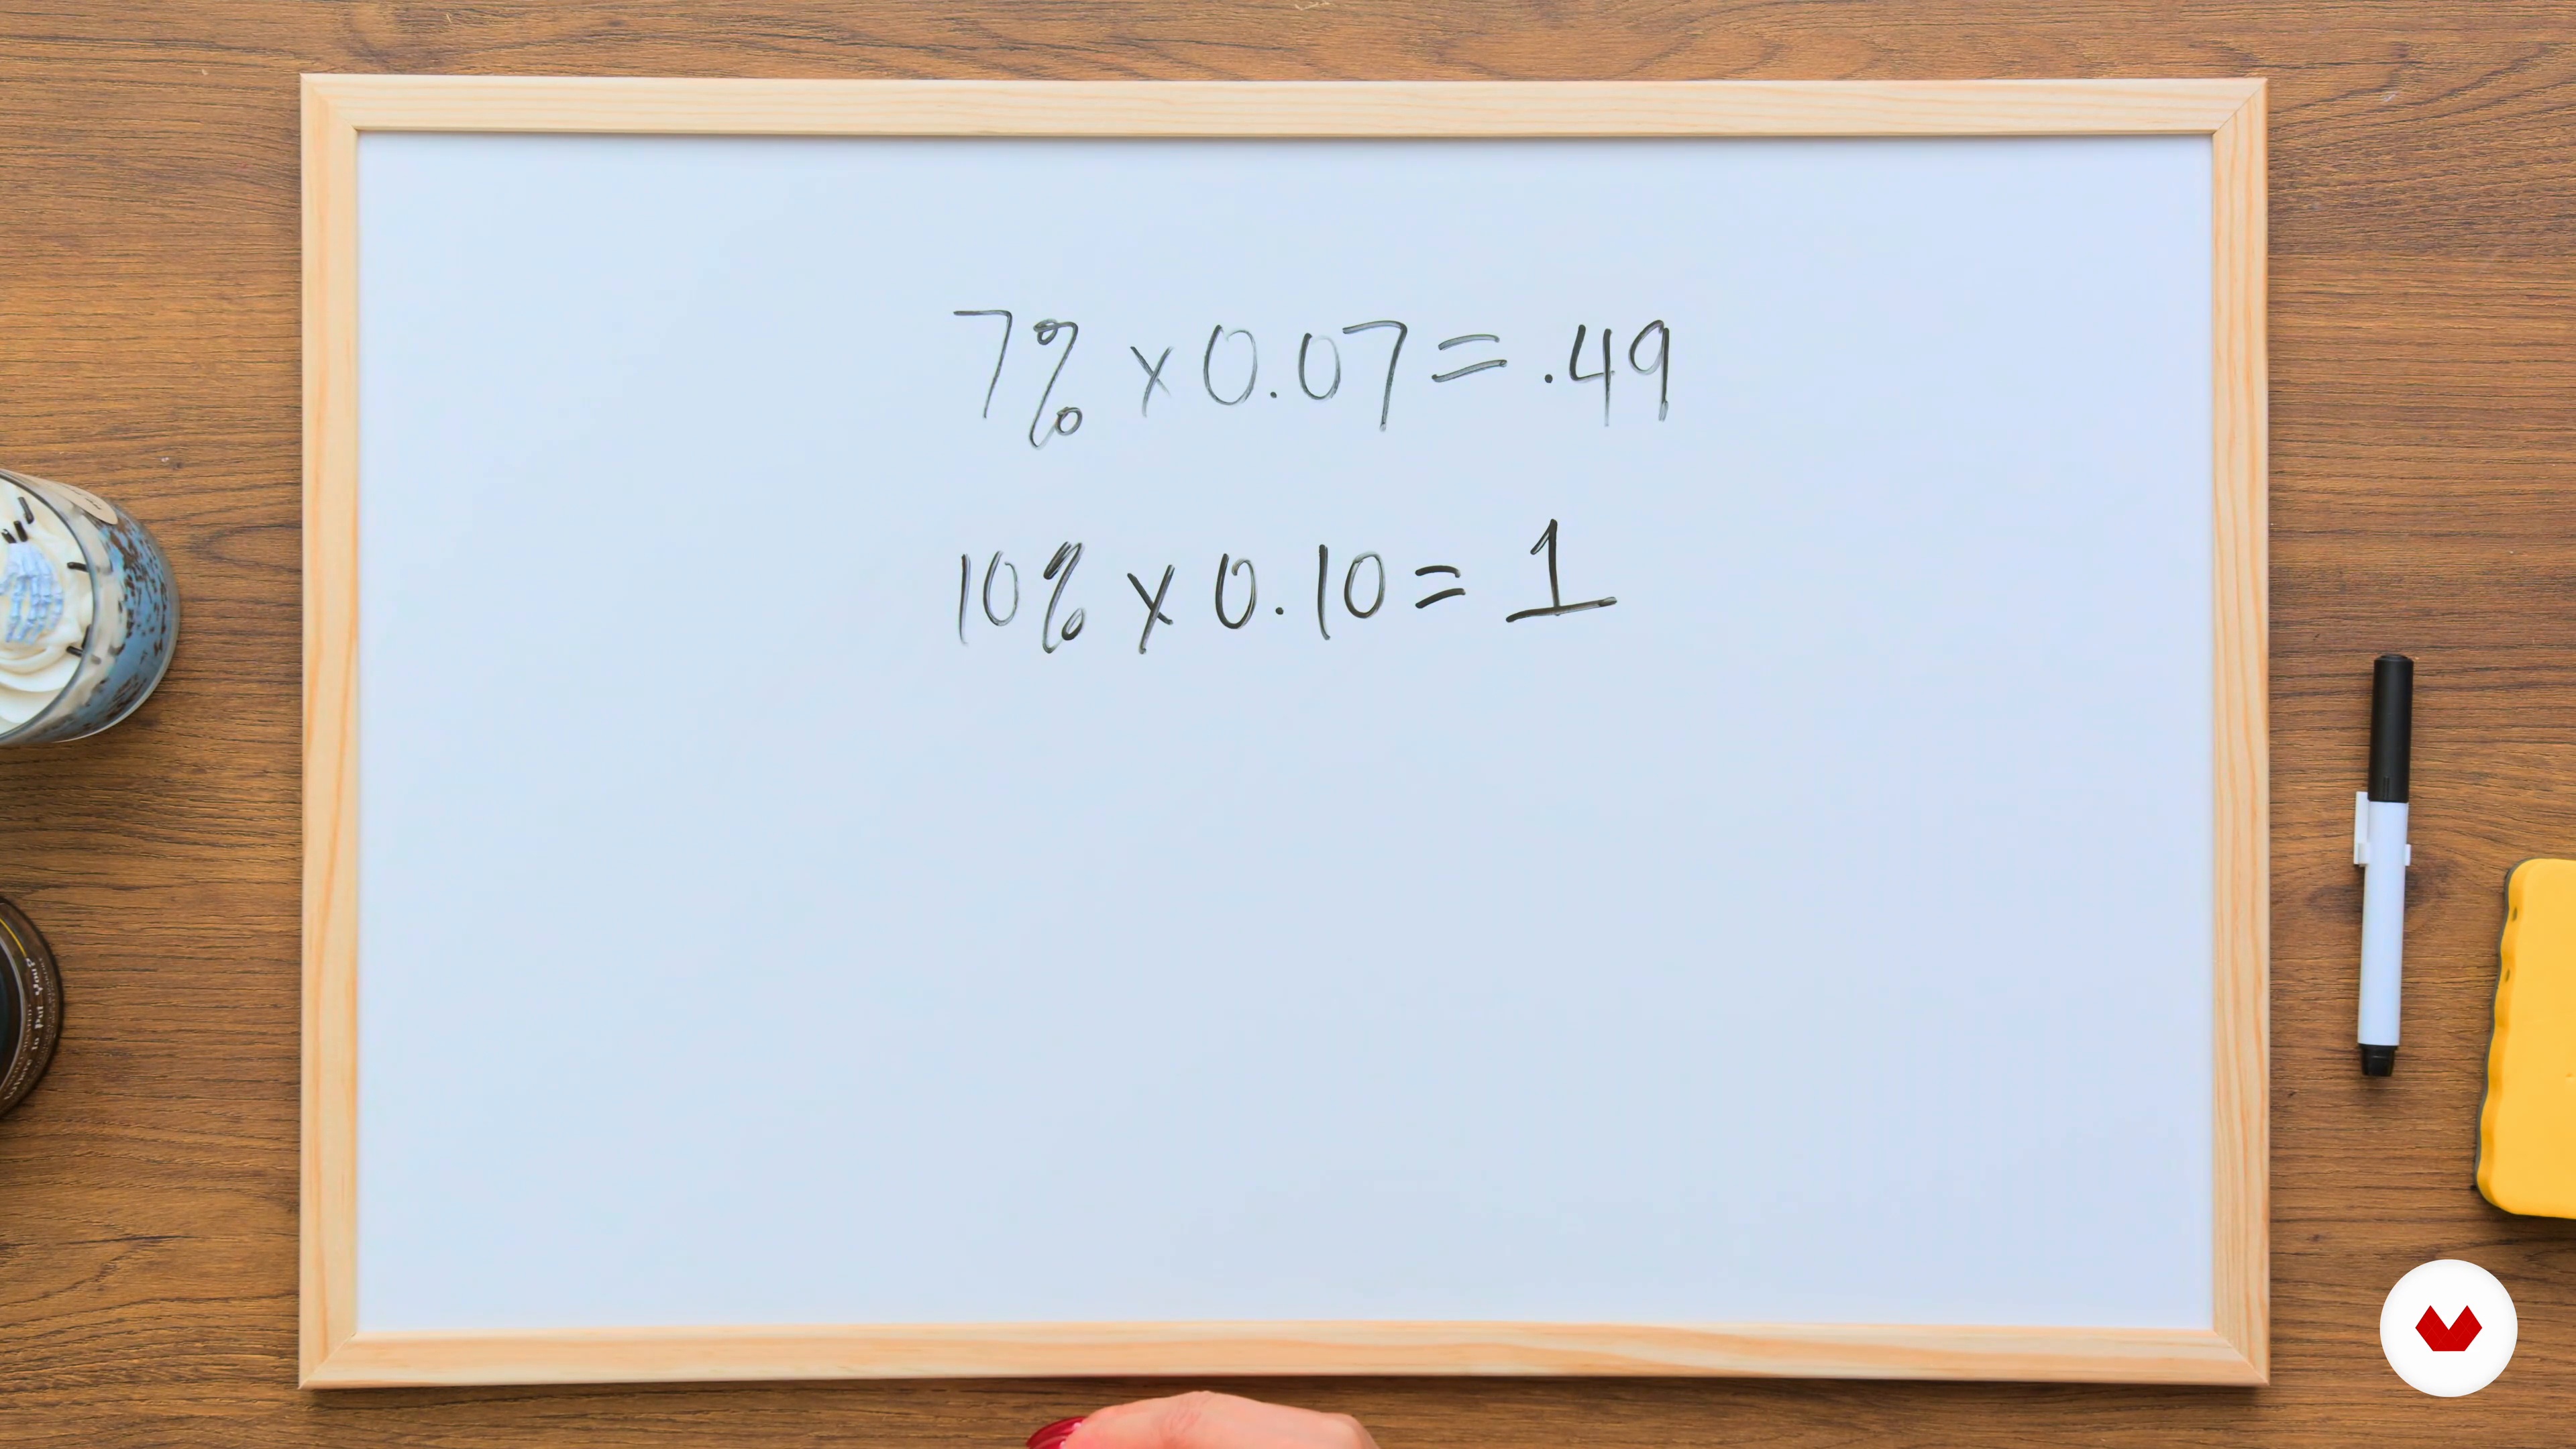 7% x 0.07 = .49
10% x 0.10 = 1